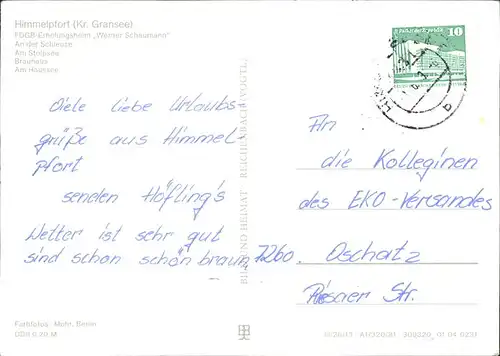 Himmelpfort (Kr. Gransee)
FDGB-Erholungsheim „Werner Schaumann“
An der Schleuse
Am Stolpsee
Brauhaus
Am Haussee
10
Viele liebe Urlaubs-
grüße aus Himmel-
pfort
senden Höfling's
Wetter ist sehr gut
sind schon schön braun,
BILD UND HEIMAT REICHENBACH (VOGTL)
An
die Kolleginen
des EKO-Versandes
7260. Oschatz
Riesaer Str.
Farbfotos: Mohr, Berlin
A1/320/81 300220 01 04 0231